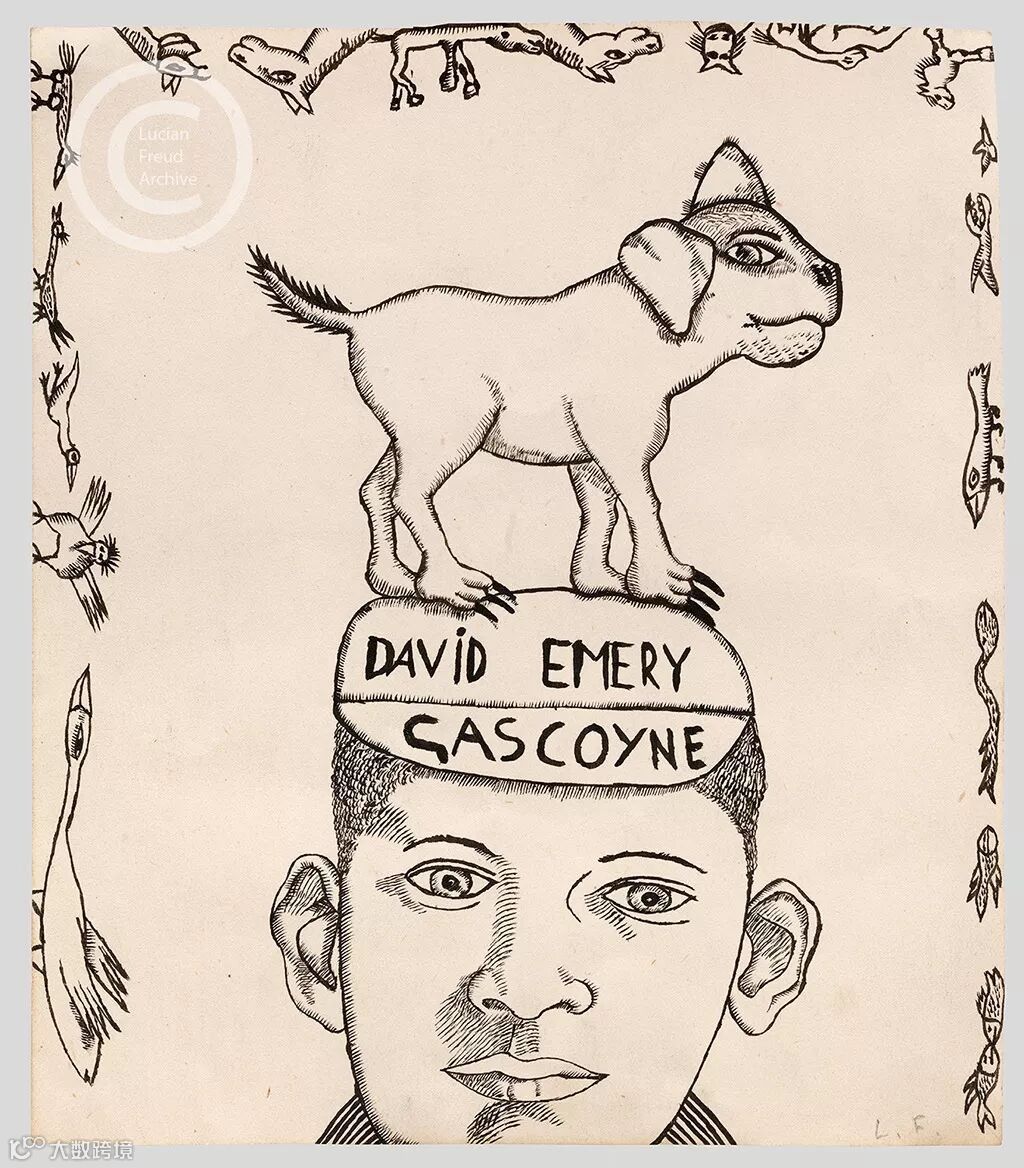 Lucian
Freud
Archive
DAViD EMERY
GASCOYNE
L. F.
大数跨境